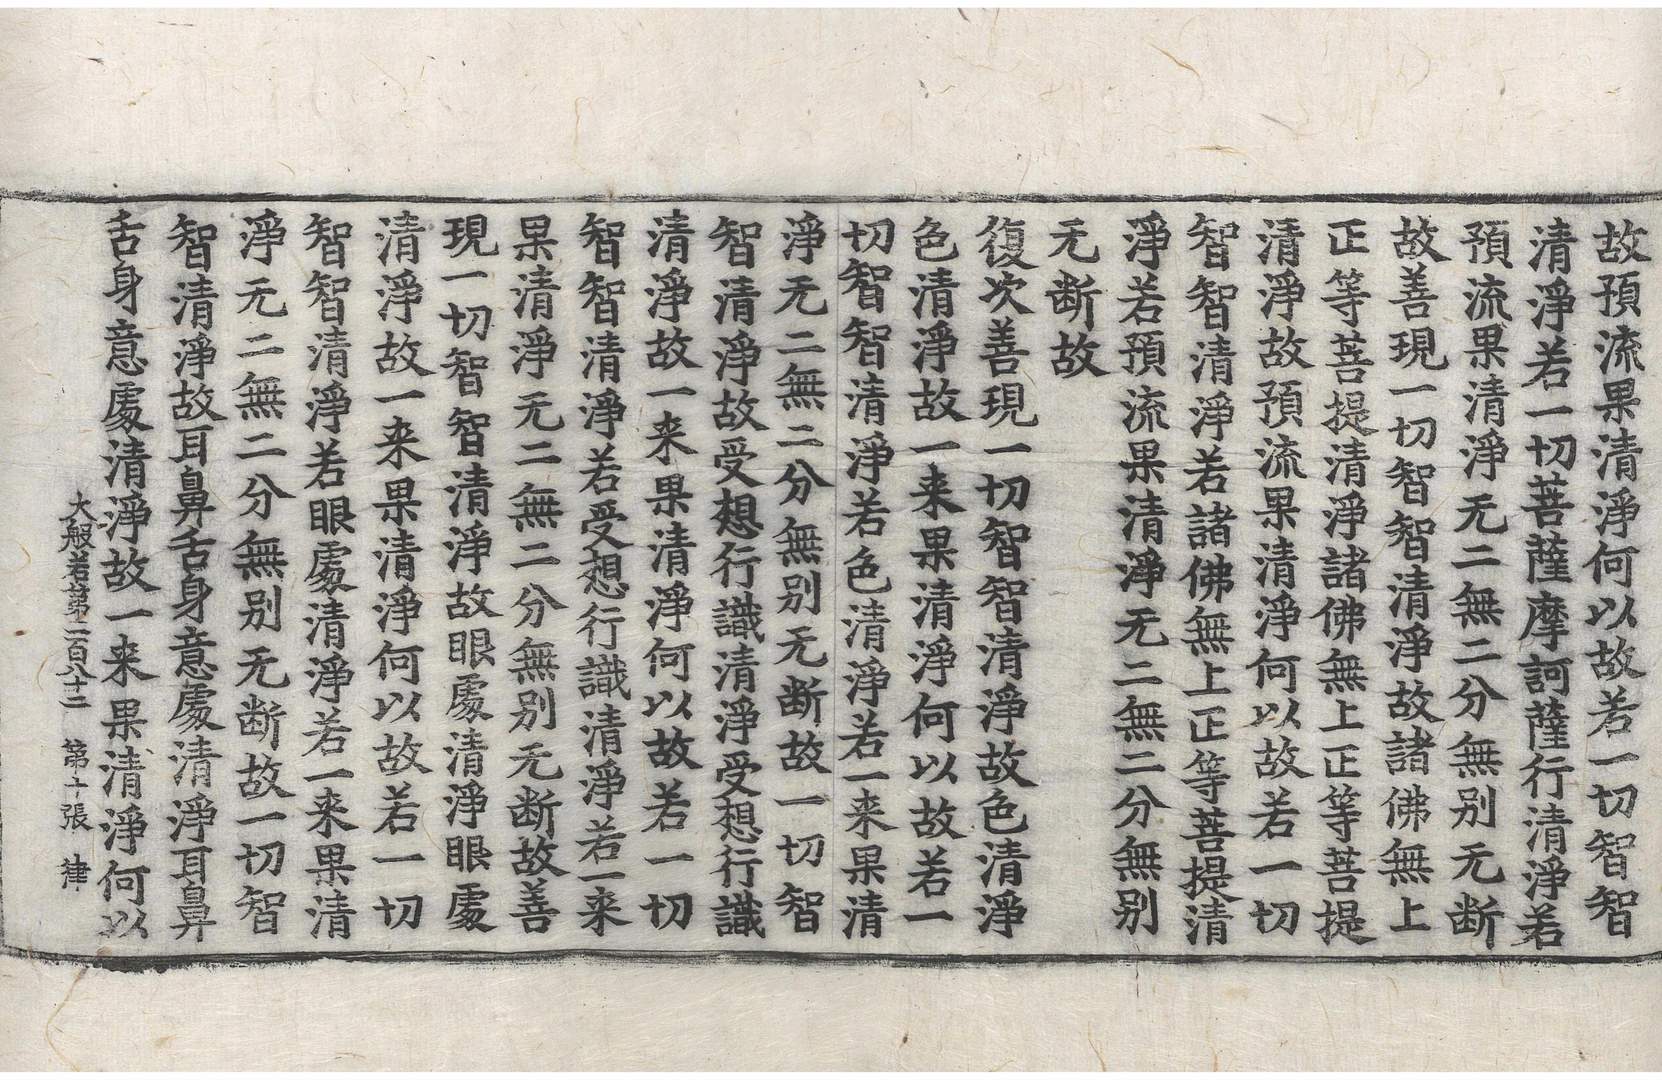 故預流果清淨何以故若一切智智
清淨若一切菩薩摩訶薩行清淨若
預流果清淨无二無二分無别无断
故善現一切智智清淨故諸佛無上
正等菩提清淨諸佛無上正等菩提
清淨故預流果清淨何以故若一切
智智清淨若諸佛無上正等菩提清
淨若預流果清淨无二無二分無别
无断故
復次善現一切智智清淨故色清淨
色清淨故一来果清淨何以故若一
切智智清淨若色清淨若一来果清
淨无二無二分無别无断故一切智
智清淨故受想行識清淨受想行識
清淨故一来果清淨何以故若一切
智智清淨若受想行識清淨若一来
果清淨无二無二分無别无断故善
現一切智智清淨故眼處清淨眼處
清淨故一来果清淨何以故若一切
智智清淨若眼處清淨若一来果清
淨无二無二分無别无断故一切智
智清淨故耳鼻舌身意處清淨耳鼻
舌身意處清淨故一来果清淨何以
大般若第二百八十二 第十張 律